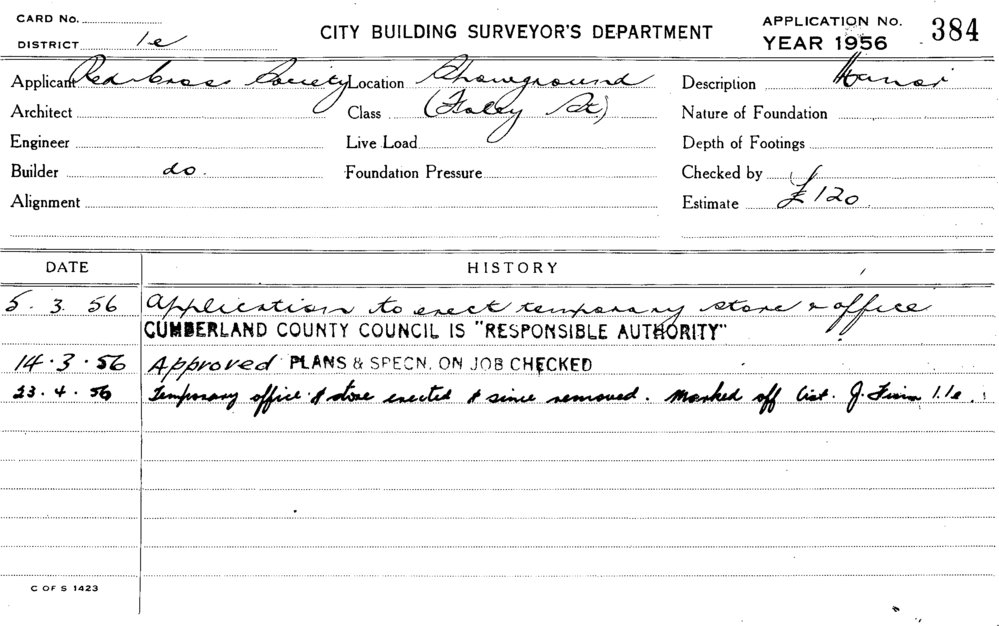 CARD No.
DISTRICT 1e
CITY BUILDING SURVEYOR'S DEPARTMENT
APPLICATION No. 384
YEAR 1956
Applicant Red Cross Society Location Showground Description Minor
Architect Class (Foley St.) Nature of Foundation
Engineer Live Load Depth of Footings
Builder do. Foundation Pressure Checked by
Alignment Estimate £120
DATE HISTORY
5.3.56 Application to erect temporary store & office
CUMBERLAND COUNTY COUNCIL IS "RESPONSIBLE AUTHORITY"
14.3.56 Approved PLANS & SPECN. ON JOB CHECKED
23.4.56 Temporary office & store erected & since removed. Marked off list. J. 1.1e.
C OF S 1423